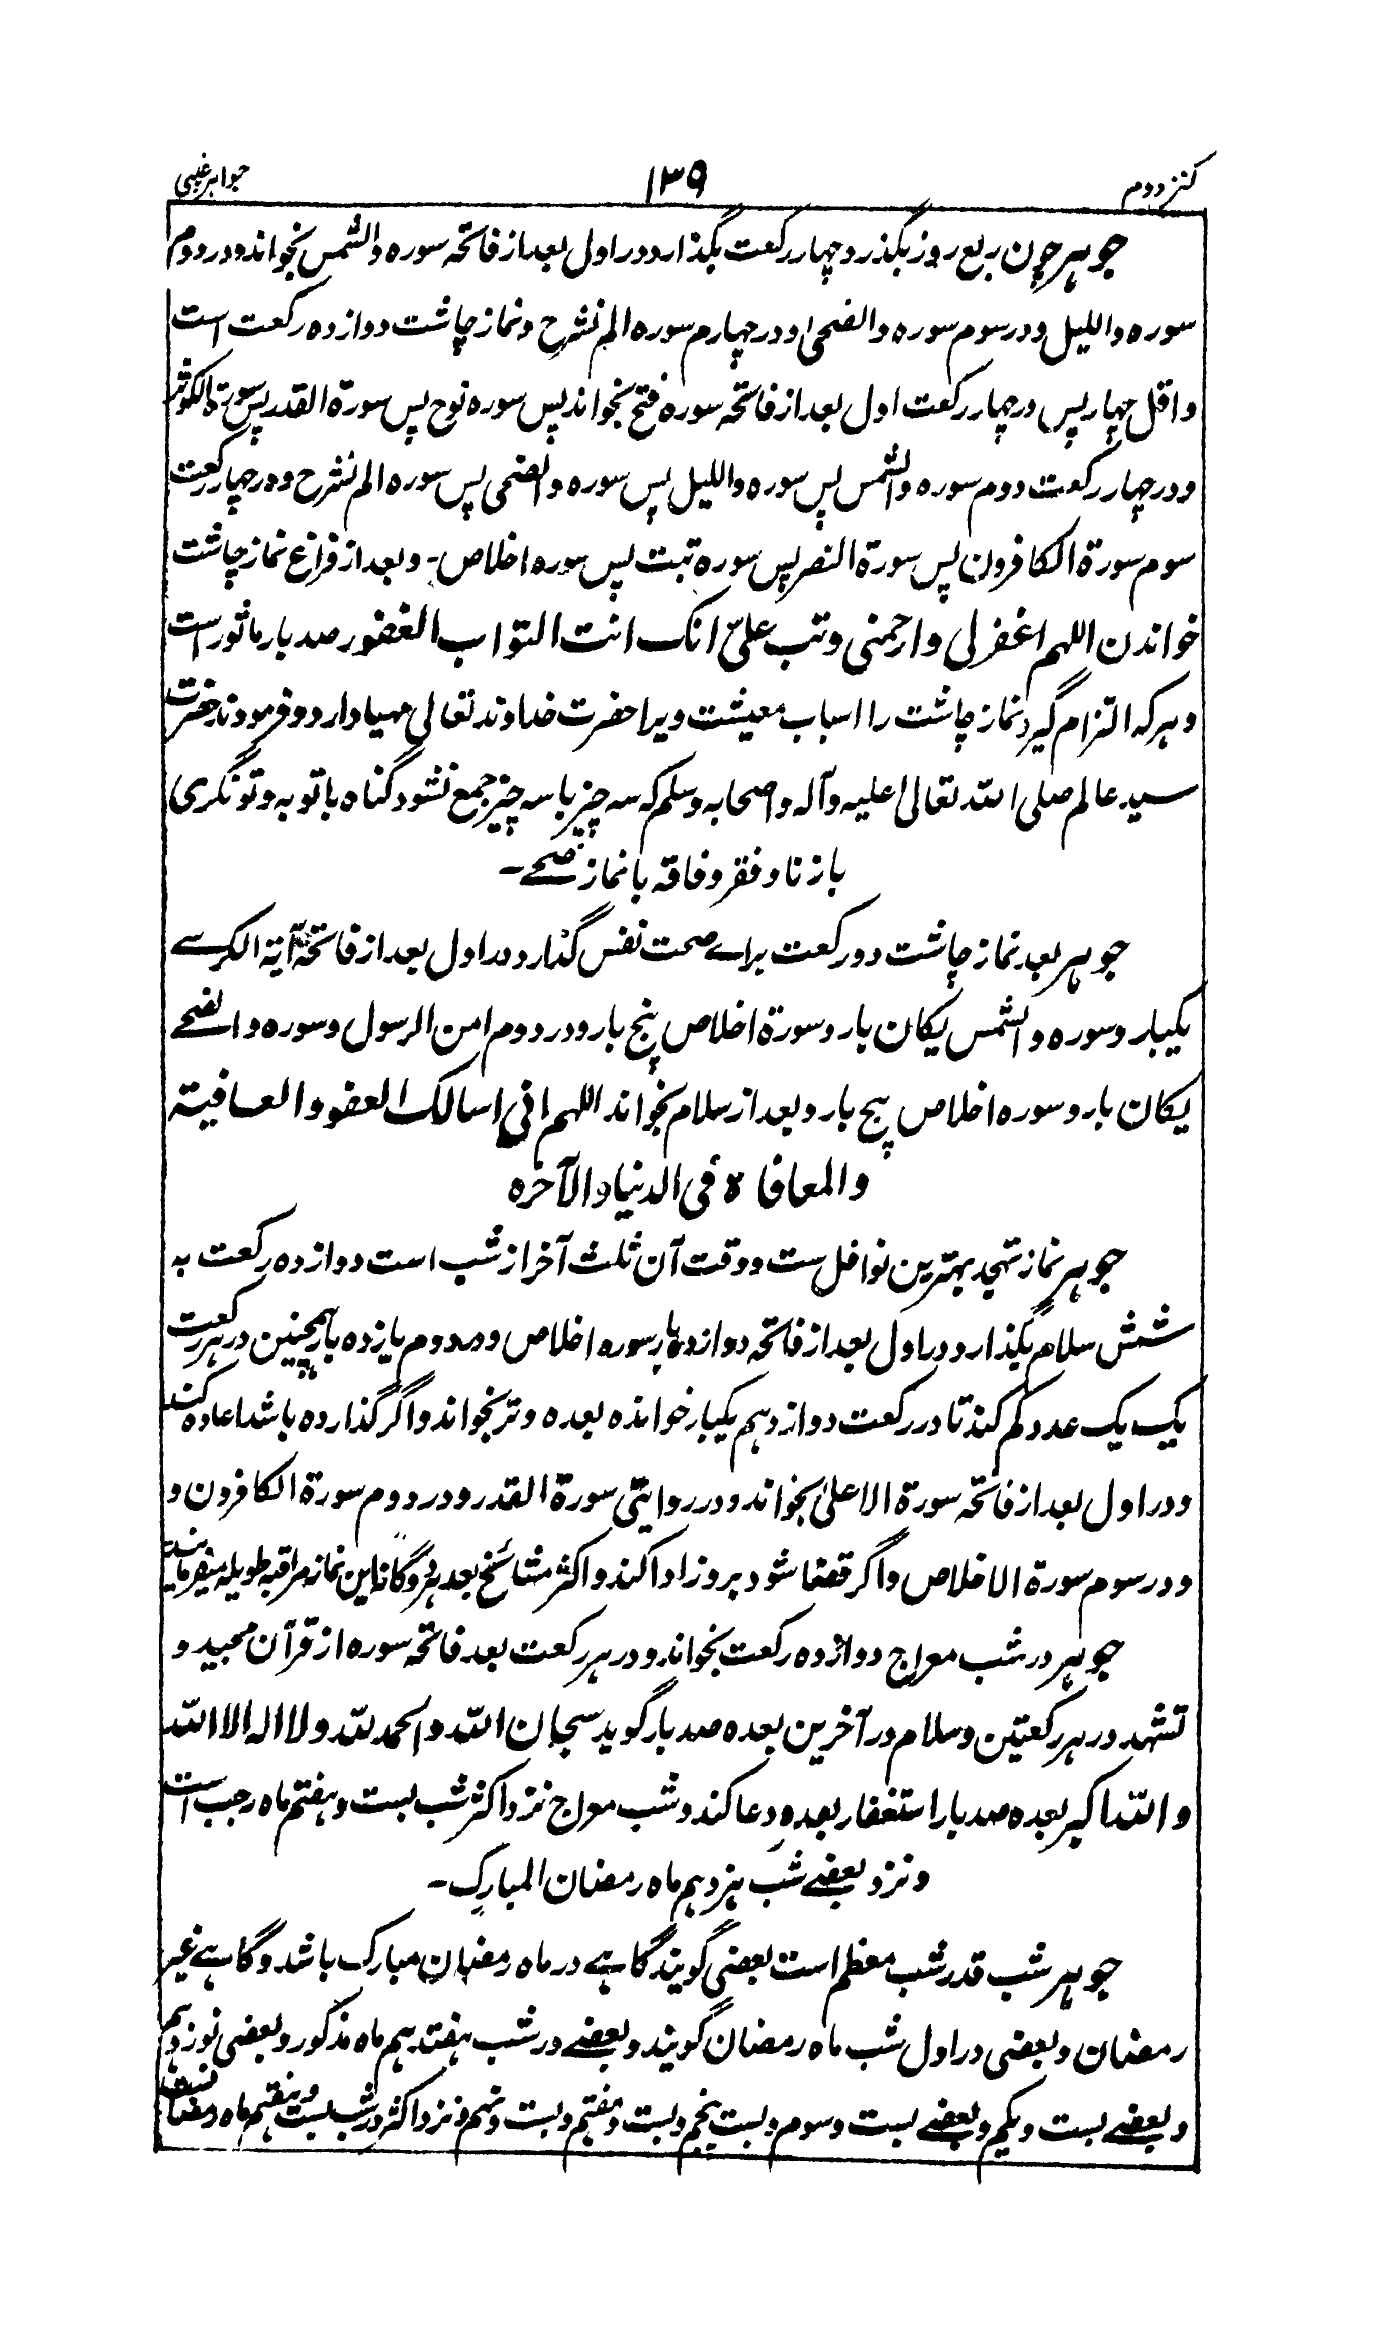 کنز دوم ۱۳۹ جواہر غیبی
جوہر چون ربع روز بگذرد چہار رکعت بگذارد در اول بعد از فاتحہ سورہ والشمس بخواند و در دوم
سورہ واللیل و در سوم سورہ والضحیٰ و در چہارم سورہ الم نشرح و نماز چاشت دوازدہ رکعت است
و اقل چہار پس در چہار رکعت اول بعد از فاتحہ سورہ فتح بخواند پس سورہ نوح پس سورۃ القدر پس سورۃ الکوثر
و در چہار رکعت دوم سورہ والشمس پس سورہ واللیل پس سورہ والضحی پس سورہ الم نشرح و در چہار رکعت
سوم سورۃ الکافرون پس سورۃ النصر پس سورہ تبت پس سورہ اخلاص۔ و بعد از فراغ نماز چاشت
خواندن اللہم اغفر لی وارحمنی وتب علیّ انک انت التواب الغفور صد بار ماثور است
و ہر کہ التزام گیرد نماز چاشت را اسباب معیشت ویرا حضرت خداوند تعالی مہیا دارد و فرمودند حضرت
سید عالم صلی اللہ تعالیٰ علیہ وآلہ واصحابہ وسلم کہ سہ چیز با سہ چیز جمع نشود گناہ با توبہ و تونگری
با زنا و فقر و فاقہ با نماز ضحے۔
جوہر بعد نماز چاشت دو رکعت براے صحت نفس گذارد در اول بعد از فاتحہ آیۃ الکرسے
یکبار و سورہ والشمس یکان بار و سورۃ اخلاص پنج بار و در دوم امن الرسول و سورہ والضحے
یکان بار و سورہ اخلاص پنج بار و بعد از سلام بخواند اللہم انی اسالک العفو والعافیۃ
والمعافاۃ فی الدنیا والآخرہ
جوہر نماز تہجد بہترین نوافل ست و وقت آن ثلث آخر از شب است دوازدہ رکعت بہ
شش سلام بگذارد در اول بعد از فاتحہ دوازدہ بار سورہ اخلاص و در دوم یازدہ بار ہمچنین در ہر رکعت
یک یک عدد کم کند تا در رکعت دوازدہم یکبار خواندہ بعدہ وتر بخواند و اگر گذاردہ باشد اعادہ کند
و در اول بعد از فاتحہ سورۃ الاعلیٰ بخواند و در روایتی سورۃ القدر و در دوم سورۃ الکافرون و
و در سوم سورۃ الاخلاص و اگر قضا شود بروز ادا کند و اکثر مشائخ بعد ہر دوگانہ این نماز مراقبہ طویلہ میفرمایند
جوہر در شب معراج دوازدہ رکعت بخواند و در ہر رکعت بعد فاتحہ سورہ از قرآن مجید و
تشہد در ہر رکعتین و سلام در آخرین بعدہ صد بار گوید سبحان اللہ والحمد للہ ولا الہ الا اللہ
واللہ اکبر بعدہ صد بار استغفار بعدہ دعا کند و شب معراج نزد اکثر شب بست و ہفتم ماہ رجب است
و نزد بعضے شب ہژدہم ماہ رمضان المبارک۔
جوہر شب قدر شب معظم است بعضی گویند گاہے در ماہ رمضان مبارک باشد و گاہے غیر
رمضان و بعضی در اول شب ماہ رمضان گویند و بعضے در شب ہفتدہم ماہ مذکور و بعضی نوزدہم
و بعضے بست و یکم و بعضے بست و سوم و بست پنجم و بست و ہفتم و بست و نہم و نزد اکثر در شب بست و ہفتم ماہ رمضان